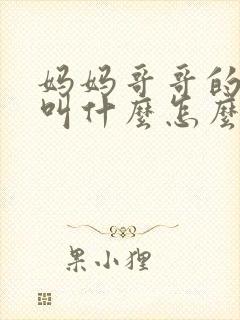 妈妈哥哥的
叫什麼怎麼
果小狸